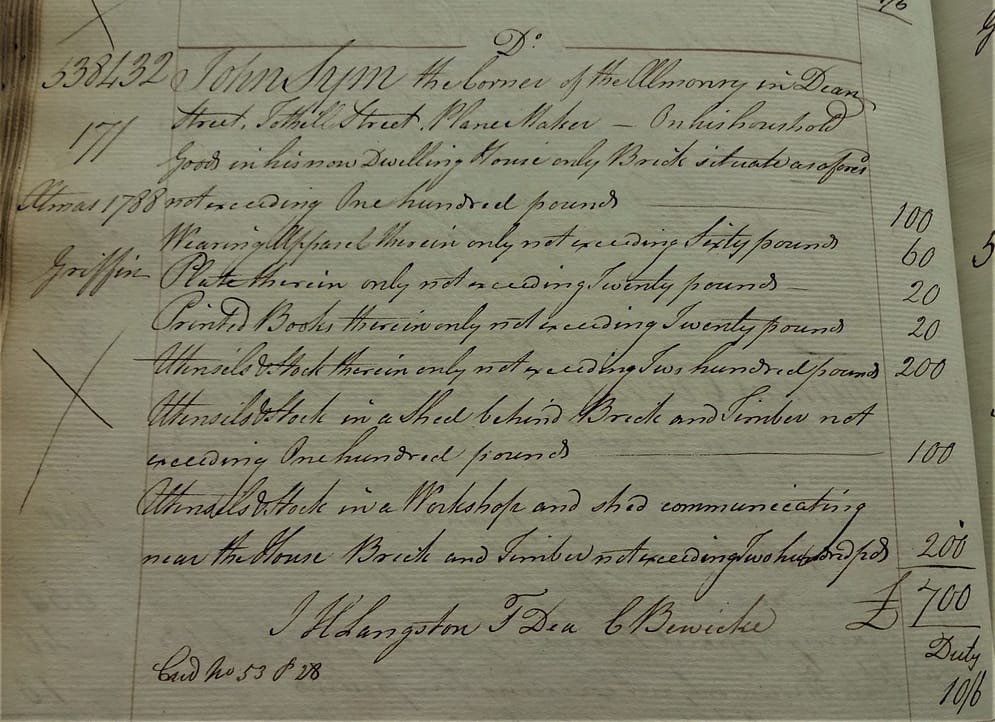 Do
538432 John Sym the Corner of the Almonry in Dean
Street, Tothill Street, Plane Maker — On his houshold
17/1
Goods in his now Dwelling House only Brick situate as afores.d
Xtmas 1788 not exceeding One hundred pounds 100
Wearing Apparel therein only not exceeding Sixty pounds 60
Griffin Plate therein only not exceeding Twenty pounds — 20
Printed Books therein only not exceeding Twenty pounds 20
Utensils & Stock therein only not exceeding Two hundred pounds 200
Utensils & Stock in a Shed behind Brick and Timber not
exceeding One hundred pounds 100
Utensils & Stock in a Workshop and shed communicating
near the House Brick and Timber not exceeding Two hundred pds 200
£ 700
J H Langston T Dea C Bewicke
Duty
Card No 53 P 28
10/6